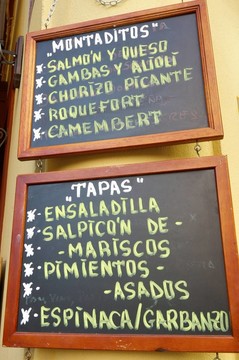 "MONTADITOS"
* SALMÓN Y QUESO
* GAMBAS Y ALIOLI
* CHORIZO PICANTE
* ROQUEFORT
* CAMEMBERT
"TAPAS"
* -ENSALADILLA
* -SALPICÓN DE -
-MARISCOS
* -PIMIENTOS -
* -ASADOS
* -ESPINACA/GARBANZO